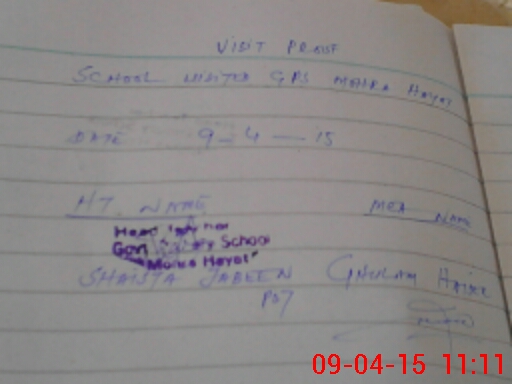 VISIT PROOF
SCHOOL VISITED GPS MOHRA HAYAT
DATE 9-4-15
HT. NAME
MEA NAME
Govt School
"Mohra Hayat"
SHAISTA JABEEN GHULAM
PST
09-04-15 11:11